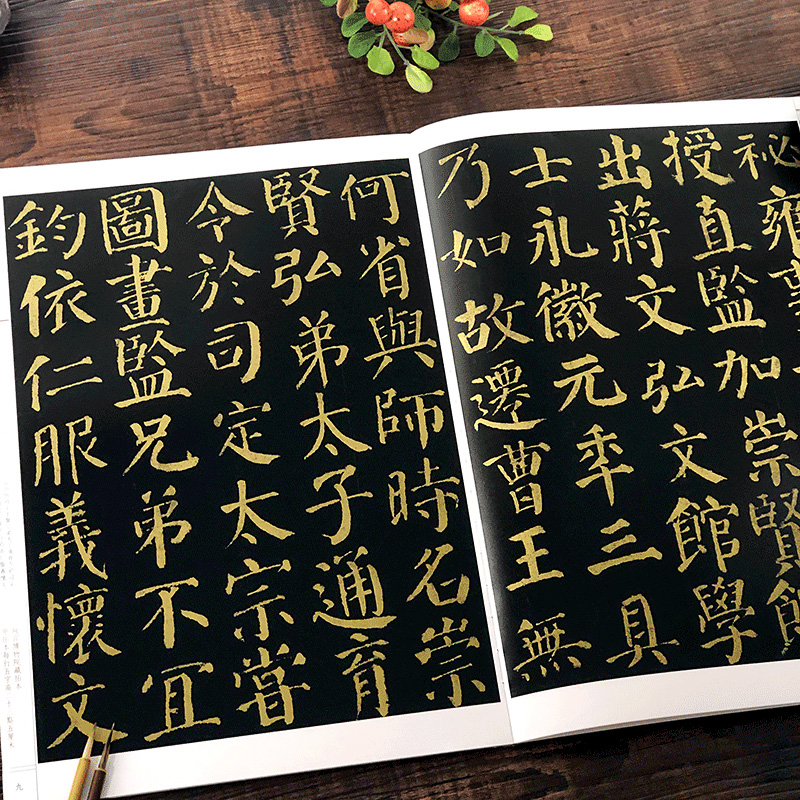 祕雍
授直監加崇賢館
出蔣文弘文館學
士永徽元年三具
乃如故遷曹王無
何省與師時名崇
賢弘弟太子通育
令於司定太宗嘗
圖畫監兄弟不宜
鈞依仁服義懷文
九